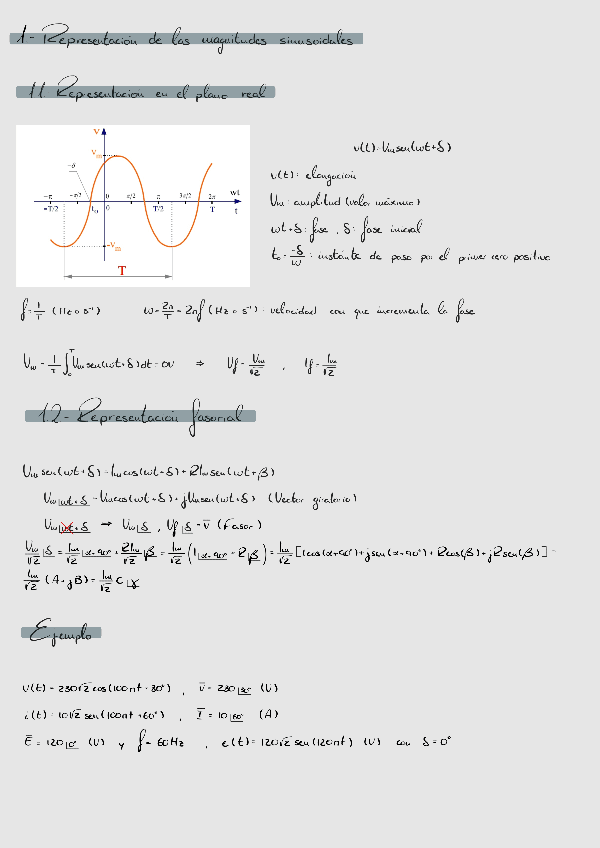 1- Representación de las magnitudes sinusoidales
1.1. Representación en el plano real
v
Vm
-δ
-π -π/2 0 π/2 π 3π/2 2π wt
-T/2 t₀ 0 T/2 T t
-Vm
T
v(t)=Vmsen(wt+δ)
v(t): elongación
Vm: amplitud (valor máximo)
wt+δ: fase, δ: fase inicial
t₀ = -δ/w : instante de paso por el primer cero positivo
f=1/T (Hz o s⁻¹) w=2π/T=2πf (Hz o s⁻¹): velocidad con que incrementa la fase
= 1/T ∫₀ᵀ Vm sen(wt+δ)dt = 0V ⇒ Vf = Vm/√2 , If = Im/√2
1.2- Representación fasorial
Vm sen(wt+δ)=Imcos(wt+δ)+RImsen(wt+β)
Vm|wt+δ = Vmcos(wt+δ)+jVmsen(wt+δ) (Vector giratorio)
Vm|wt+δ → Vm|δ , Vf|δ = v̄ (Fasor)
Vm/√2 |δ = Im/√2 |α+90° + RIm/√2 |β = Im/√2 (1|α+90° + R|β) = Im/√2 [1cos(α+90°)+jsen(α+90°)+Rcos(β)+jRsen(β)] =
Im/√2 (A+jB) = Im/√2 C|γ
Ejemplo
v(t) = 230√2 cos(100πt+30°) , v̄ = 230|30° (V)
i(t) = 10√2 sen(100πt+60°) , Ī = 10|60° (A)
Ē = 120|0° (V) y f = 60Hz , e(t) = 120√2 sen(120πt) (V) con δ=0°